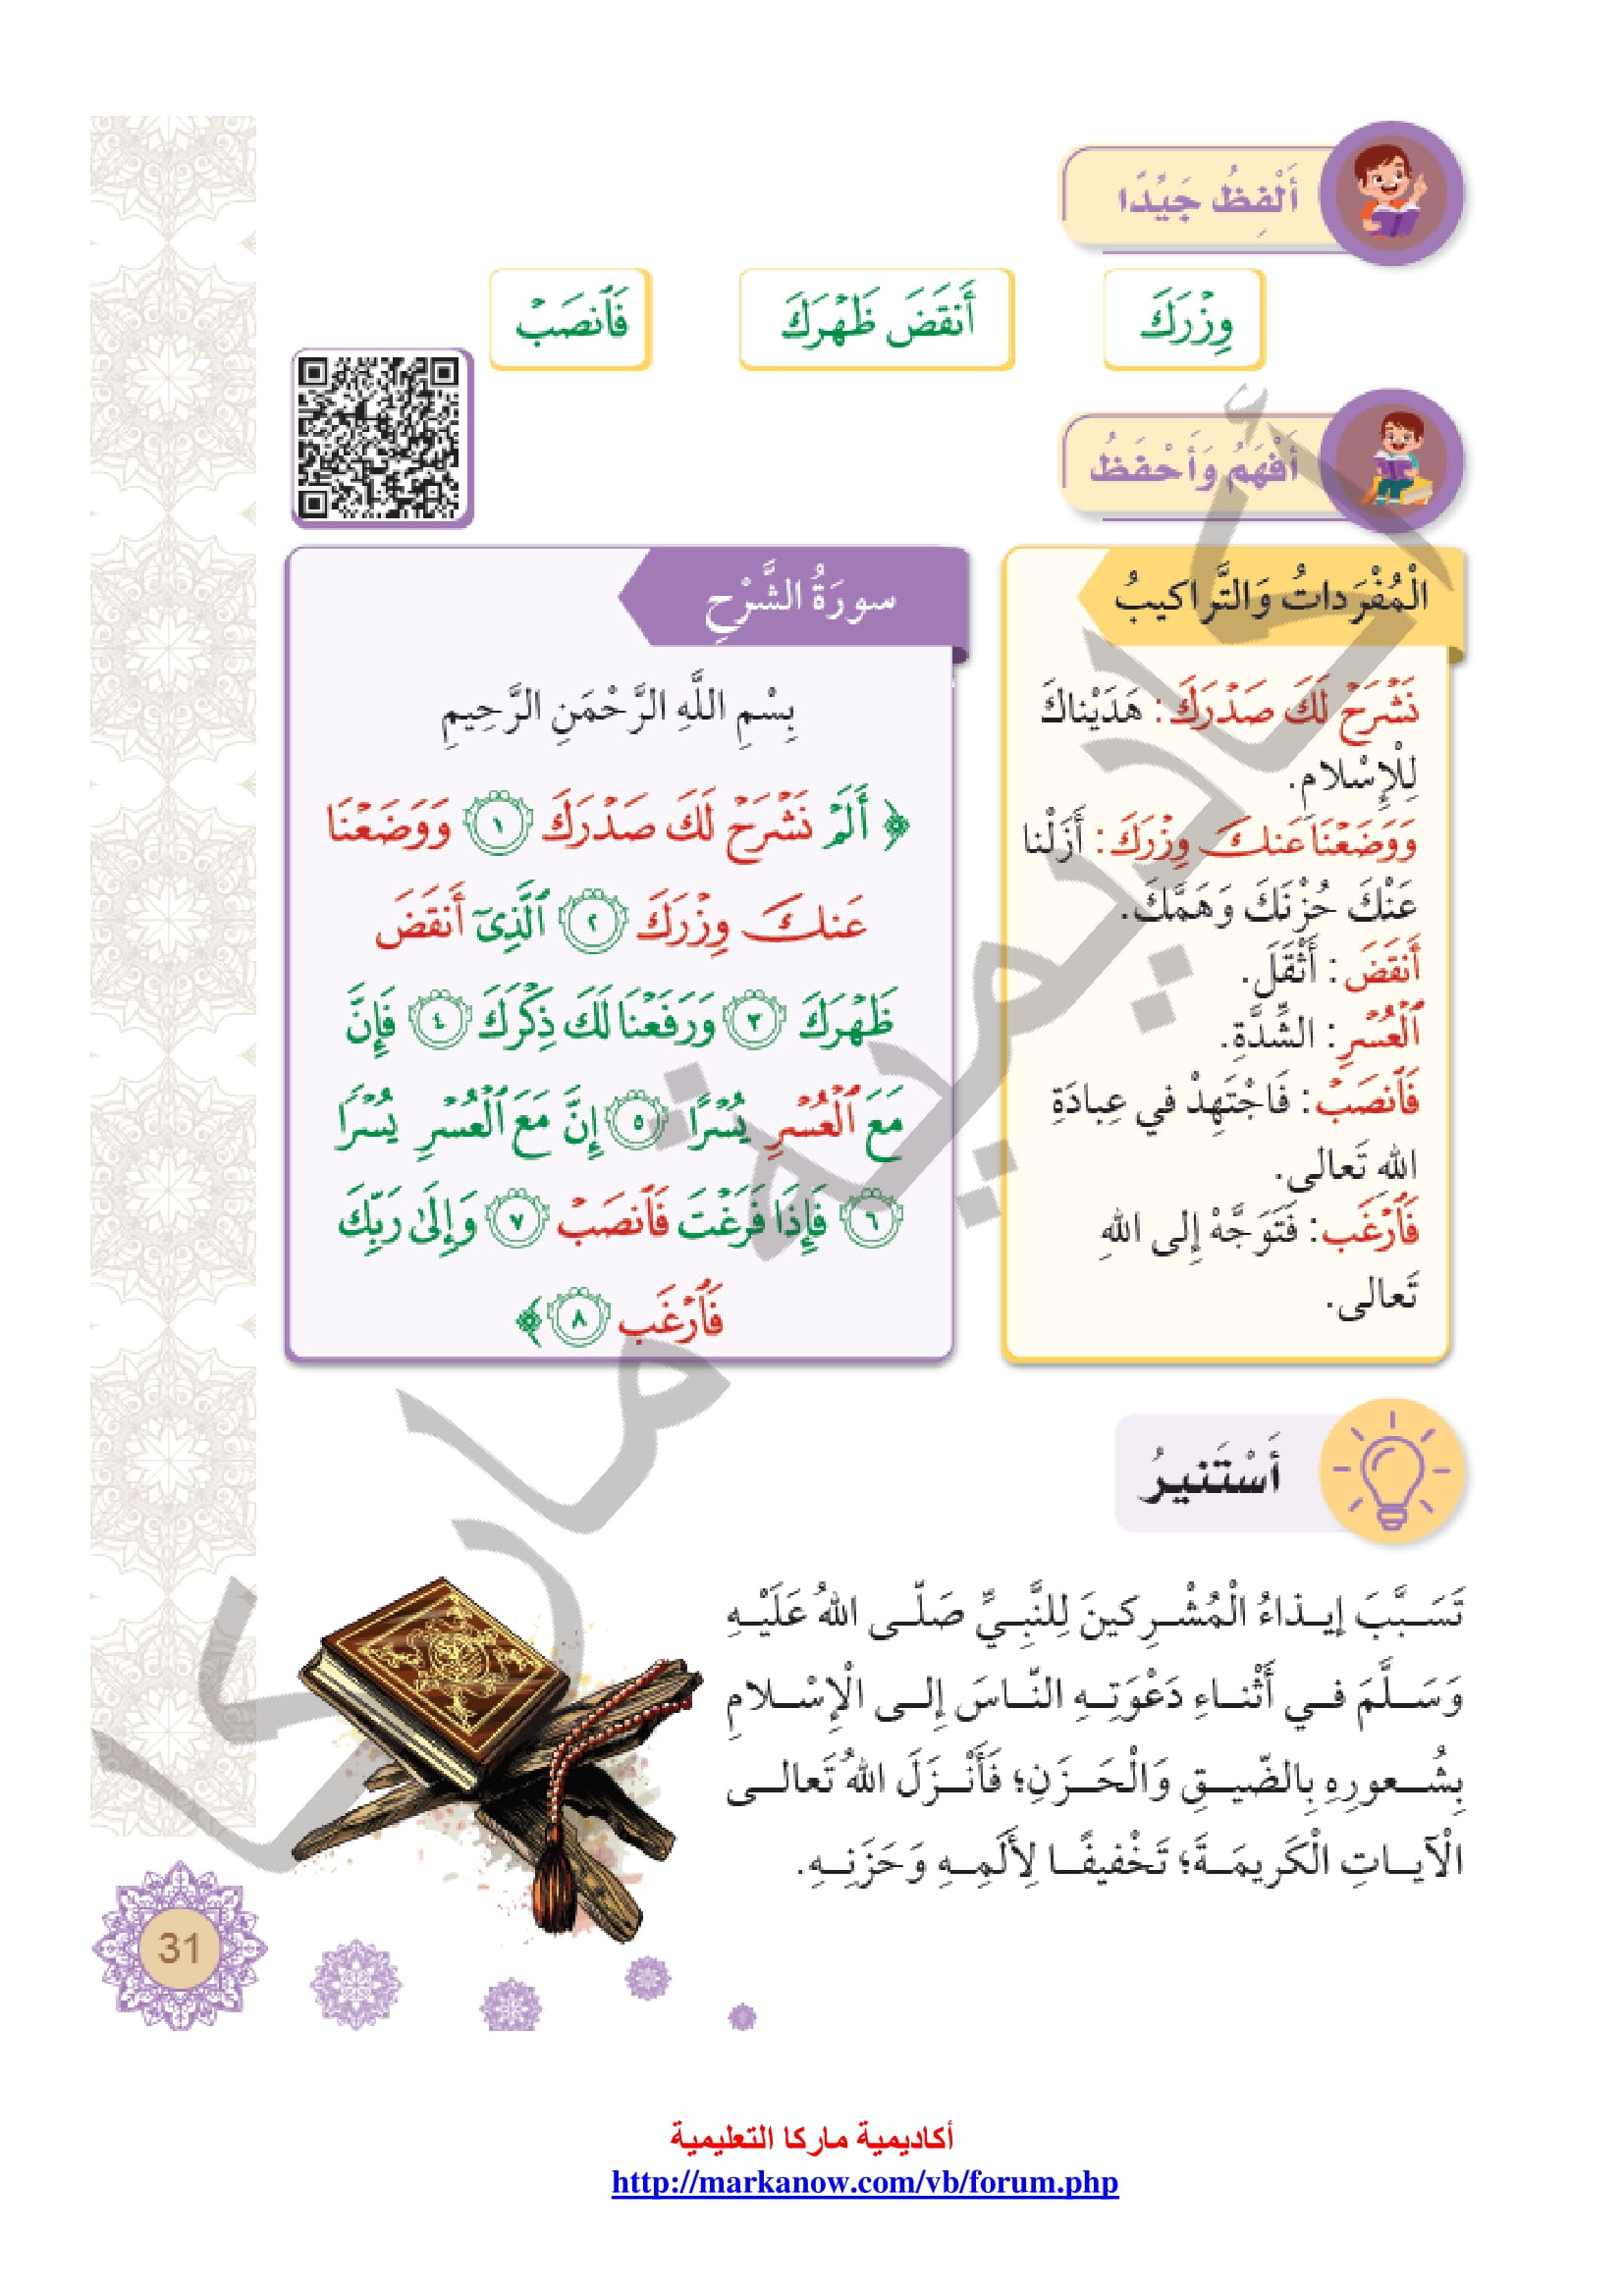 أَلْفِظُ جَيِّدًا
وِزْرَكَ
أَنقَضَ ظَهْرَكَ
فَٱنصَبْ
أَفْهَمُ وَأَحْفَظُ
الْمُفْرَداتُ وَالتَّراكيبُ
نَشْرَحْ لَكَ صَدْرَكَ: هَدَيْناكَ
لِلْإِسْلامِ.
وَوَضَعْنَا عَنكَ وِزْرَكَ: أَزَلْنا
عَنْكَ حُزْنَكَ وَهَمَّكَ.
أَنقَضَ: أَثْقَلَ.
ٱلْعُسْرِ: الشِّدَّةِ.
فَٱنصَبْ: فَاجْتَهِدْ في عِبادَةِ
اللهِ تَعالى.
فَٱرْغَب: فَتَوَجَّهْ إِلى اللهِ
تَعالى.
سورَةُ الشَّرْحِ
بِسْمِ اللَّهِ الرَّحْمَنِ الرَّحِيمِ
﴿ أَلَمْ نَشْرَحْ لَكَ صَدْرَكَ ١ وَوَضَعْنَا
عَنكَ وِزْرَكَ ٢ ٱلَّذِىٓ أَنقَضَ
ظَهْرَكَ ٣ وَرَفَعْنَا لَكَ ذِكْرَكَ ٤ فَإِنَّ
مَعَ ٱلْعُسْرِ يُسْرًا ٥ إِنَّ مَعَ ٱلْعُسْرِ يُسْرًا
٦ فَإِذَا فَرَغْتَ فَٱنصَبْ ٧ وَإِلَىٰ رَبِّكَ
فَٱرْغَب ٨ ﴾
أَسْتَنيرُ
تَسَبَّبَ إيذاءُ الْمُشْرِكينَ لِلنَّبِيِّ صَلّى اللهُ عَلَيْهِ
وَسَلَّمَ في أَثْناءِ دَعْوَتِهِ النّاسَ إِلى الْإِسْلامِ
بِشُعورِهِ بِالضّيقِ وَالْحَزَنِ؛ فَأَنْزَلَ اللهُ تَعالى
الْآياتِ الْكَريمَةَ؛ تَخْفيفًا لِأَلَمِهِ وَحَزَنِهِ.
31
أكاديمية ماركا
أكاديمية ماركا التعليمية
http://markanow.com/vb/forum.php